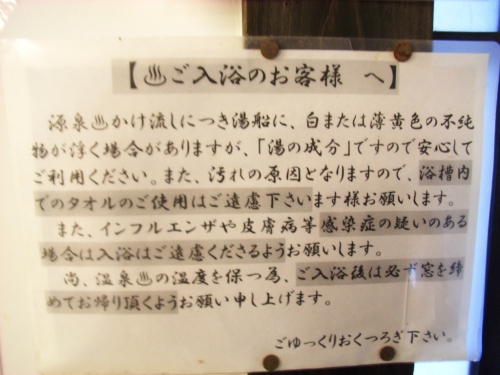 【♨ご入浴のお客様 へ】
源泉♨かけ流しにつき湯船に、白または薄黄色の不純
物が浮く場合がありますが、「湯の成分」ですので安心して
ご利用ください。また、汚れの原因となりますので、浴槽内
でのタオルのご使用はご遠慮下さいます様お願いします。
また、インフルエンザや皮膚病等感染症の疑いのある
場合は入浴はご遠慮くださるようお願いします。
尚、温泉♨の温度を保つ為、ご入浴後は必ず窓を締
めてお帰り頂くようお願い申し上げます。
ごゆっくりおくつろぎ下さい。